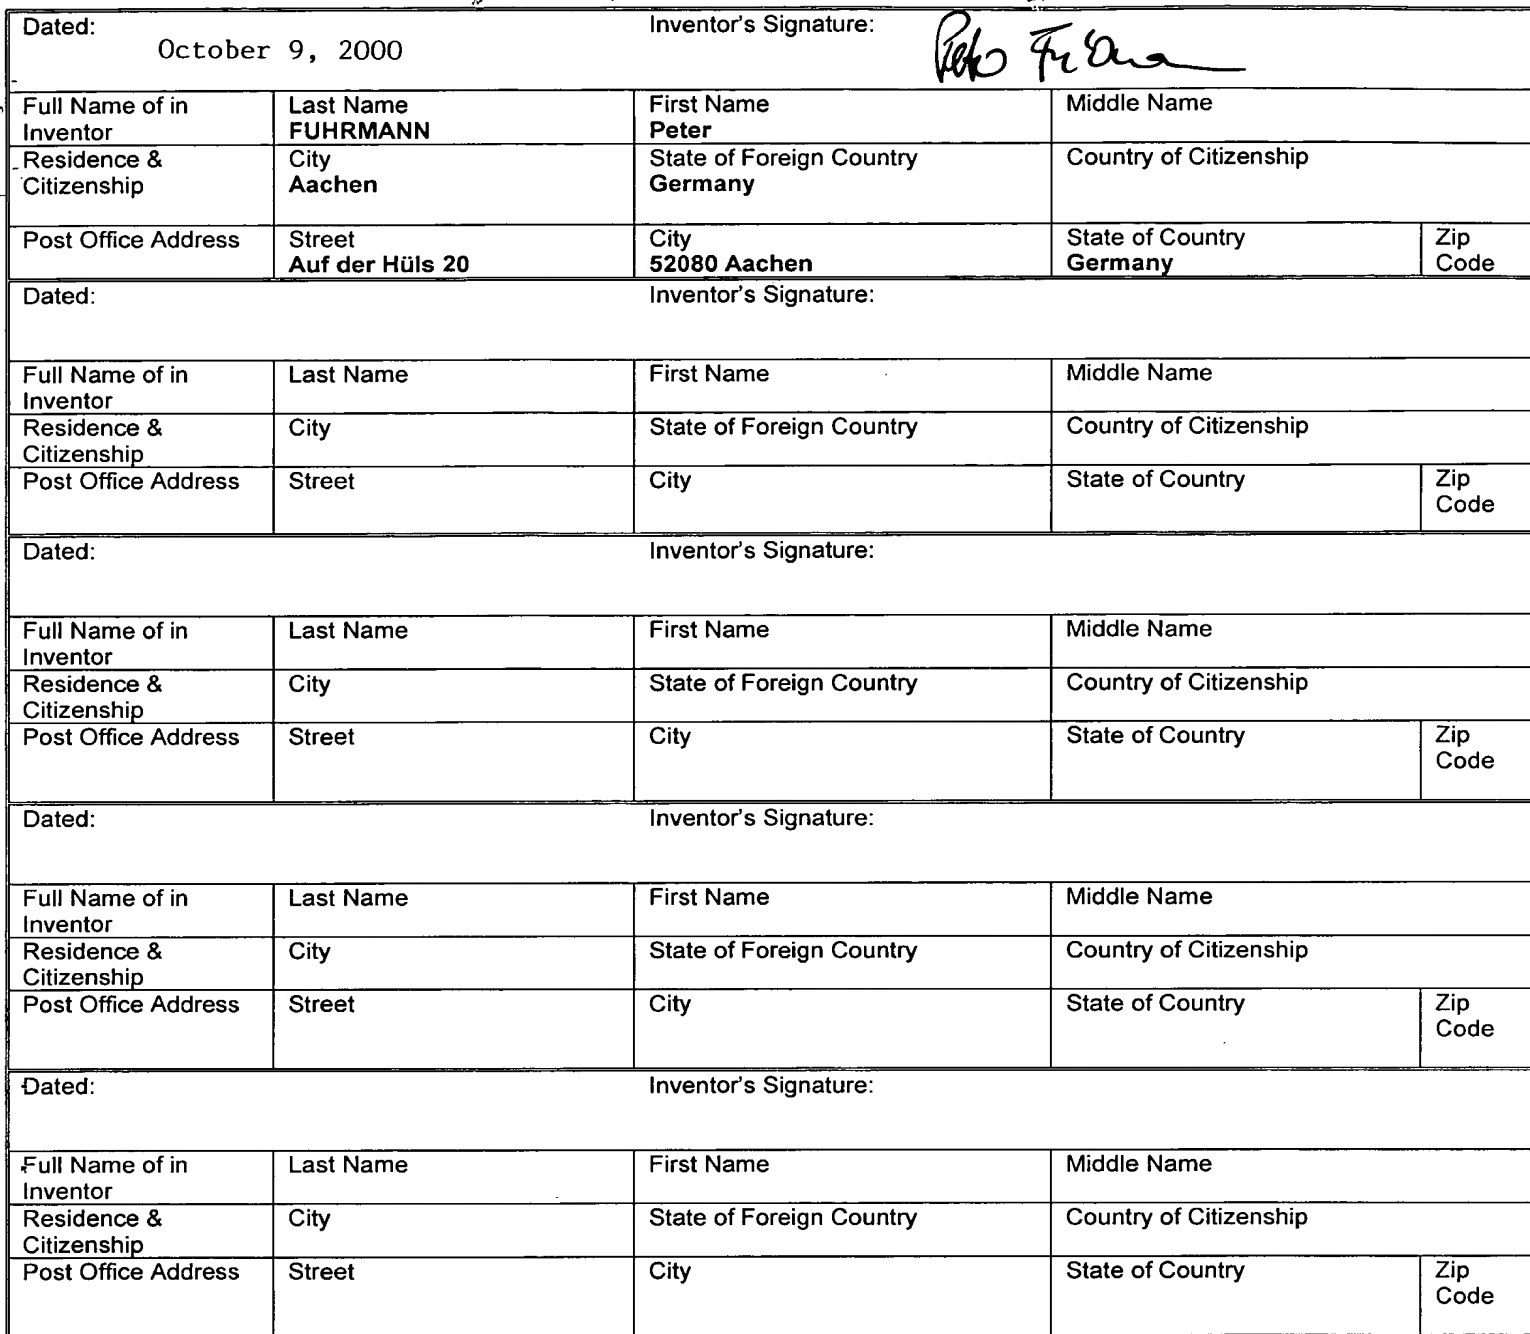 Dated: Inventor's Signature:
October 9, 2000
Full Name of in Inventor Last Name First Name Middle Name
FUHRMANN Peter
Residence & Citizenship City State of Foreign Country Country of Citizenship
Aachen Germany
Post Office Address Street City State of Country Zip Code
Auf der Hüls 20 52080 Aachen Germany
Dated: Inventor's Signature:
Full Name of in Inventor Last Name First Name Middle Name
Residence & Citizenship City State of Foreign Country Country of Citizenship
Post Office Address Street City State of Country Zip Code
Dated: Inventor's Signature:
Full Name of in Inventor Last Name First Name Middle Name
Residence & Citizenship City State of Foreign Country Country of Citizenship
Post Office Address Street City State of Country Zip Code
Dated: Inventor's Signature:
Full Name of in Inventor Last Name First Name Middle Name
Residence & Citizenship City State of Foreign Country Country of Citizenship
Post Office Address Street City State of Country Zip Code
Dated: Inventor's Signature:
Full Name of in Inventor Last Name First Name Middle Name
Residence & Citizenship City State of Foreign Country Country of Citizenship
Post Office Address Street City State of Country Zip Code